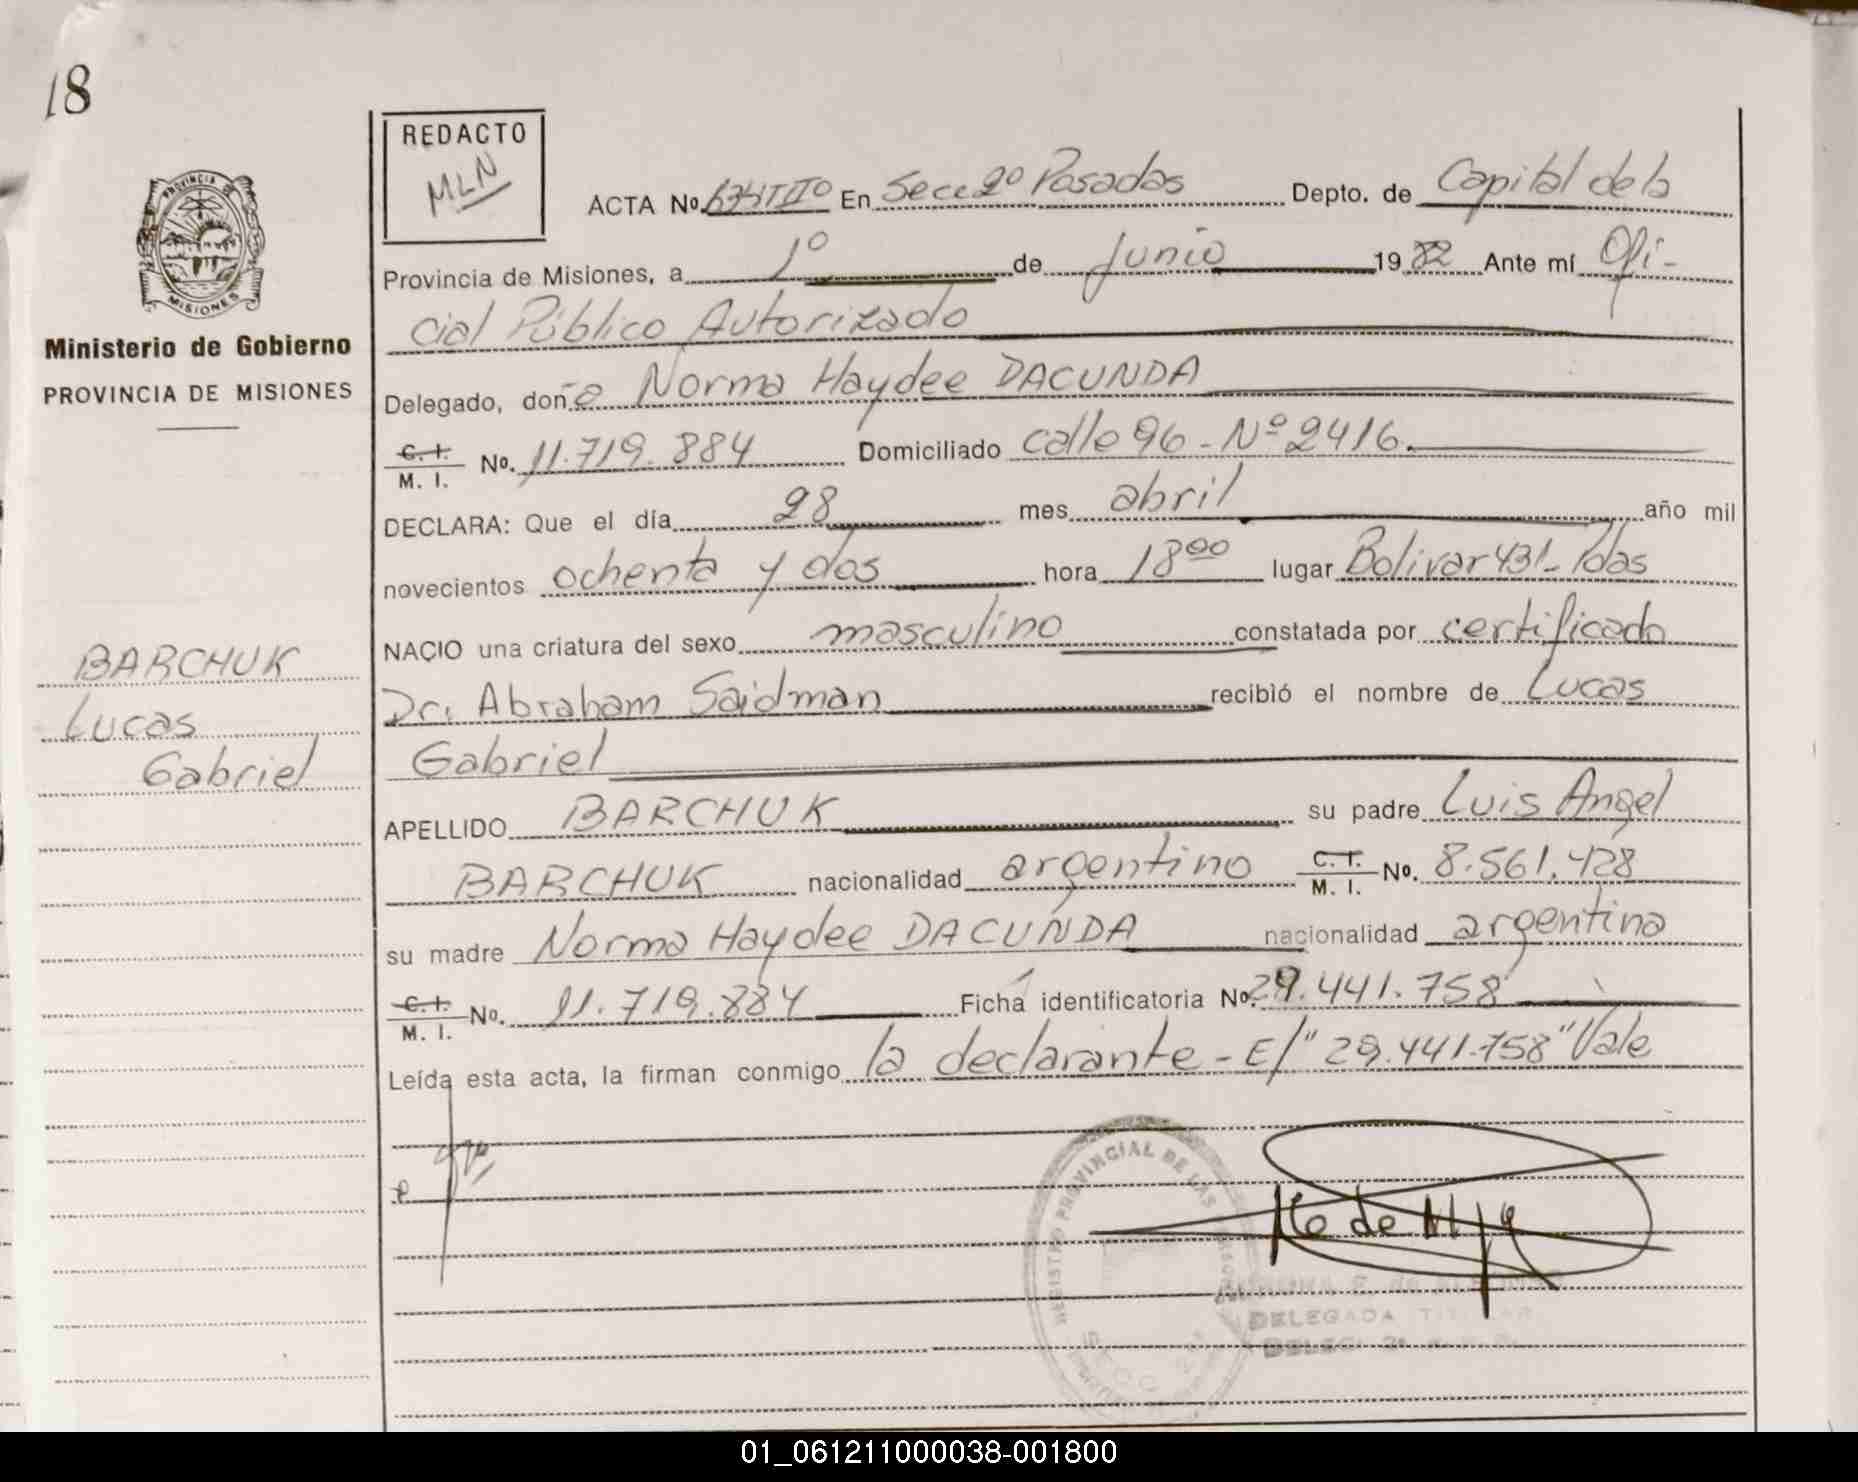 18
REDACTO
MLN
PROVINCIA
MISIONES
Ministerio de Gobierno
PROVINCIA DE MISIONES
ACTA No. En Secc 2º Posadas Depto. de Capital de la
Provincia de Misiones, a 1º de Junio 1982 Ante mí Ofi-
cial Público Autorizado
Delegado, doña Norma Haydee DACUNDA
C. I.
M. I. No. 11.719.884 Domiciliado calle 96 - Nº 2416.
DECLARA: Que el día 28 mes abril año mil
novecientos ochenta y dos hora 18 00 lugar Bolivar 431 - Pdas
NACIO una criatura del sexo masculino constatada por certificado
Dr. Abraham Saidman recibió el nombre de Lucas
Gabriel
APELLIDO BARCHUK su padre Luis Angel
BARCHUK nacionalidad argentino C. I. M. I. No. 8.561.428
su madre Norma Haydee DACUNDA nacionalidad argentina
C. I.
M. I. No. 11.719.884 Ficha identificatoria No. 29.441.758
Leída esta acta, la firman conmigo la declarante - E/" 29.441.758" Vale
BARCHUK
Lucas
Gabriel
REGISTRO PROVINCIAL DE LAS PERSONAS
DELEGADA TITULAR
01_061211000038-001800